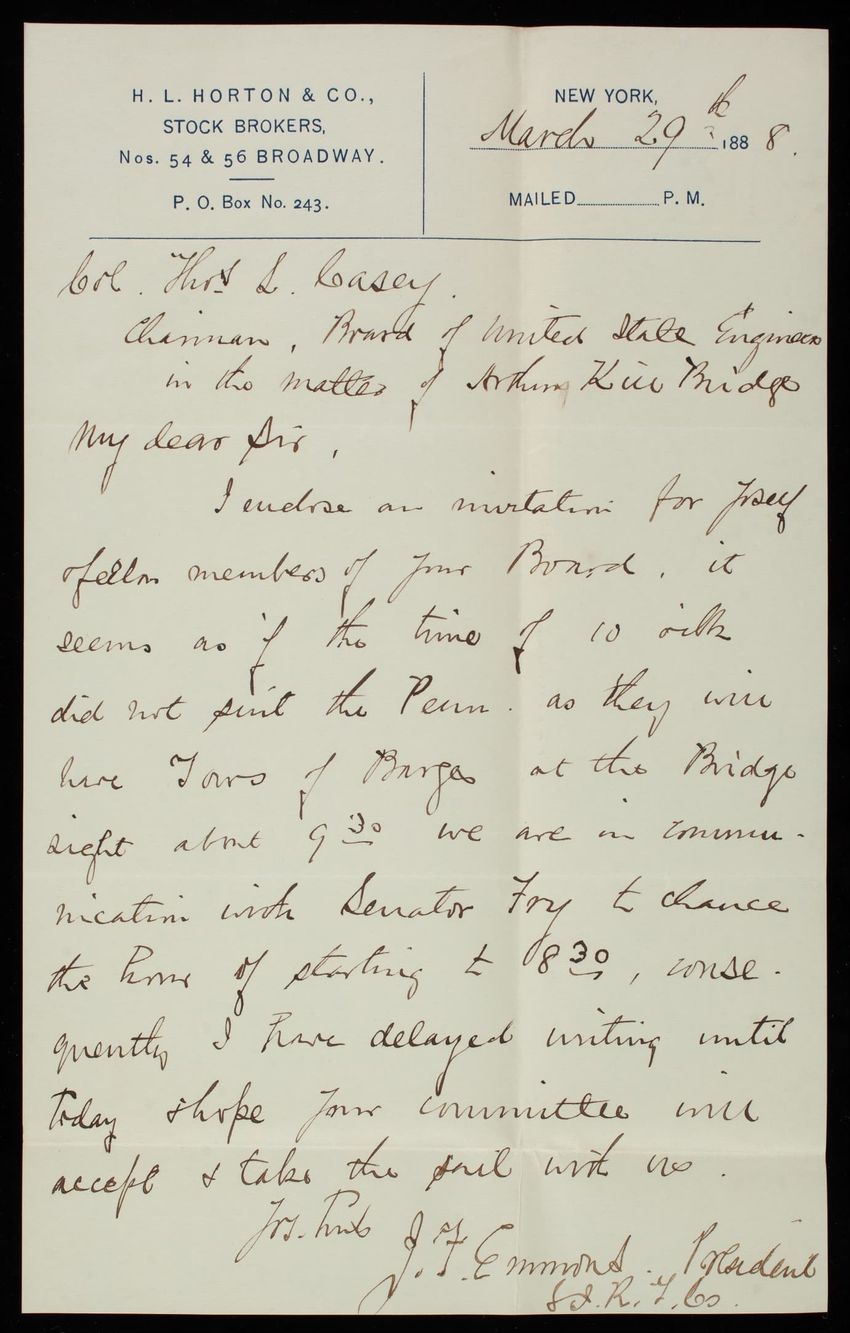 H. L. HORTON & CO.,
STOCK BROKERS,
Nos. 54 & 56 BROADWAY.
P. O. Box No. 243.
NEW YORK,
March 29th 1888.
MAILED P. M.
Col. Thos L. Casey.
Chairman, Board of United State Engineers
in the matter of Arthur Kill Bridge
My dear Sir,
I enclose an invitation for yself
& fellow members of your Board. it
seems as if the time of 10 oclk
did not suit the Penn. as they will
have Tows of Barges at the Bridge
sight about 9 30 we are in commu-
nication with Senator Fry to chance
the hour of starting to 8 30, conse-
quently I have delayed writing until
today & hope your committee will
accept & take the sail with us.
Yrs. Truly
J. F. Emmons. President
S I. R. T. Co.